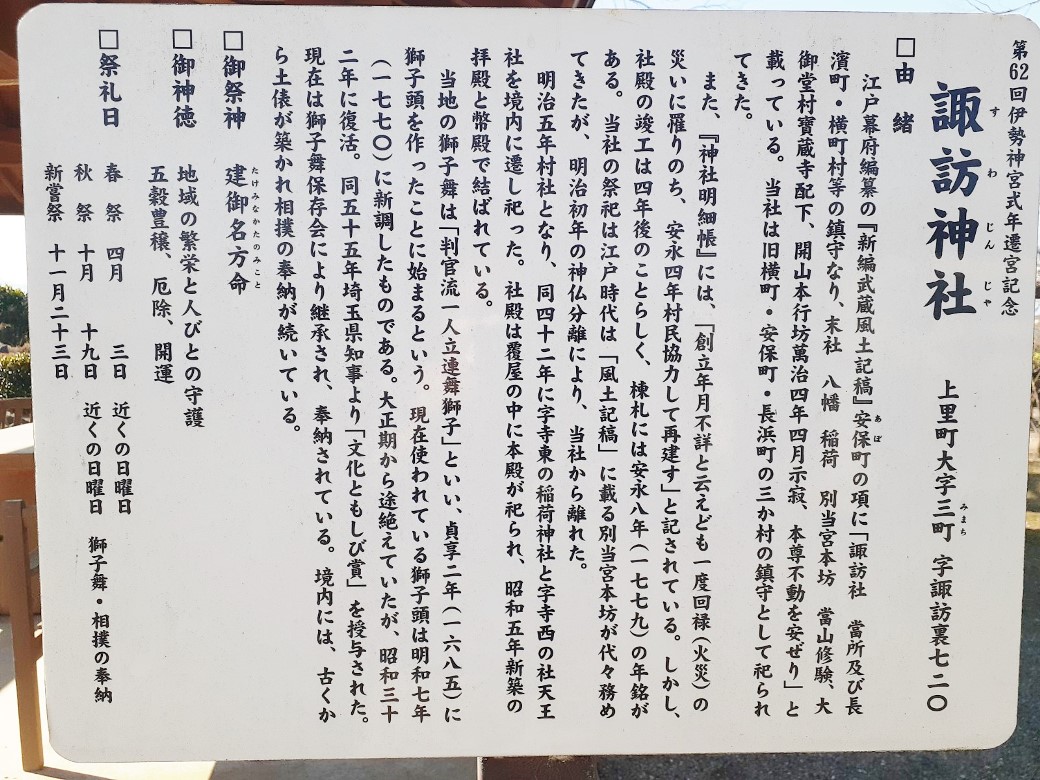 第62回伊勢神宮式年遷宮記念
諏訪神社 上里町大字三町 字諏訪裏七二〇
すわじんじゃ
みまち
□由 緒
江戸幕府編纂の『新編武蔵風土記稿』安保町の項に「諏訪社 當所及び長
あぼ
濱町・横町村等の鎮守なり、末社 八幡 稲荷 別当宮本坊 當山修験、大
御堂村寶蔵寺配下、開山本行坊萬治四年四月示寂、本尊不動を安ぜり」と
載っている。当社は旧横町・安保町・長浜町の三か村の鎮守として祀られ
てきた。
また、『神社明細帳』には、「創立年月不詳と云えども一度回禄(火災)の
災いに罹りのち、安永四年村民協力して再建す」と記されている。しかし、
社殿の竣工は四年後のことらしく、棟札には安永八年(一七七九)の年銘が
ある。当社の祭祀は江戸時代は「風土記稿」に載る別当宮本坊が代々務め
てきたが、明治初年の神仏分離により、当社から離れた。
明治五年村社となり、同四十二年に字寺東の稲荷神社と字寺西の社天王
社を境内に遷し祀った。社殿は覆屋の中に本殿が祀られ、昭和五年新築の
拝殿と幣殿で結ばれている。
当地の獅子舞は「判官流一人立連舞獅子」といい、貞享二年(一六八五)に
獅子頭を作ったことに始まるという。現在使われている獅子頭は明和七年
(一七七〇)に新調したものである。大正期から途絶えていたが、昭和三十
二年に復活。同五十五年埼玉県知事より「文化ともしび賞」を授与された。
現在は獅子舞保存会により継承され、奉納されている。境内には、古くか
ら土俵が築かれ相撲の奉納が続いている。
□御祭神 建御名方命
たけみなかたのみこと
□御神徳 地域の繁栄と人びとの守護
五穀豊穣、厄除、開運
□祭礼日 春 祭 四月 三日 近くの日曜日
秋 祭 十月 十九日 近くの日曜日 獅子舞・相撲の奉納
新嘗祭 十一月二十三日